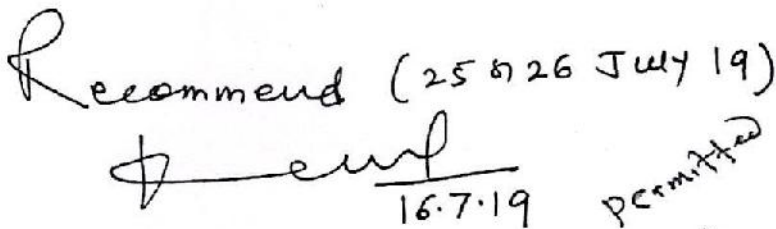 Recommend (25 & 26 July 19)
16.7.19
permitted